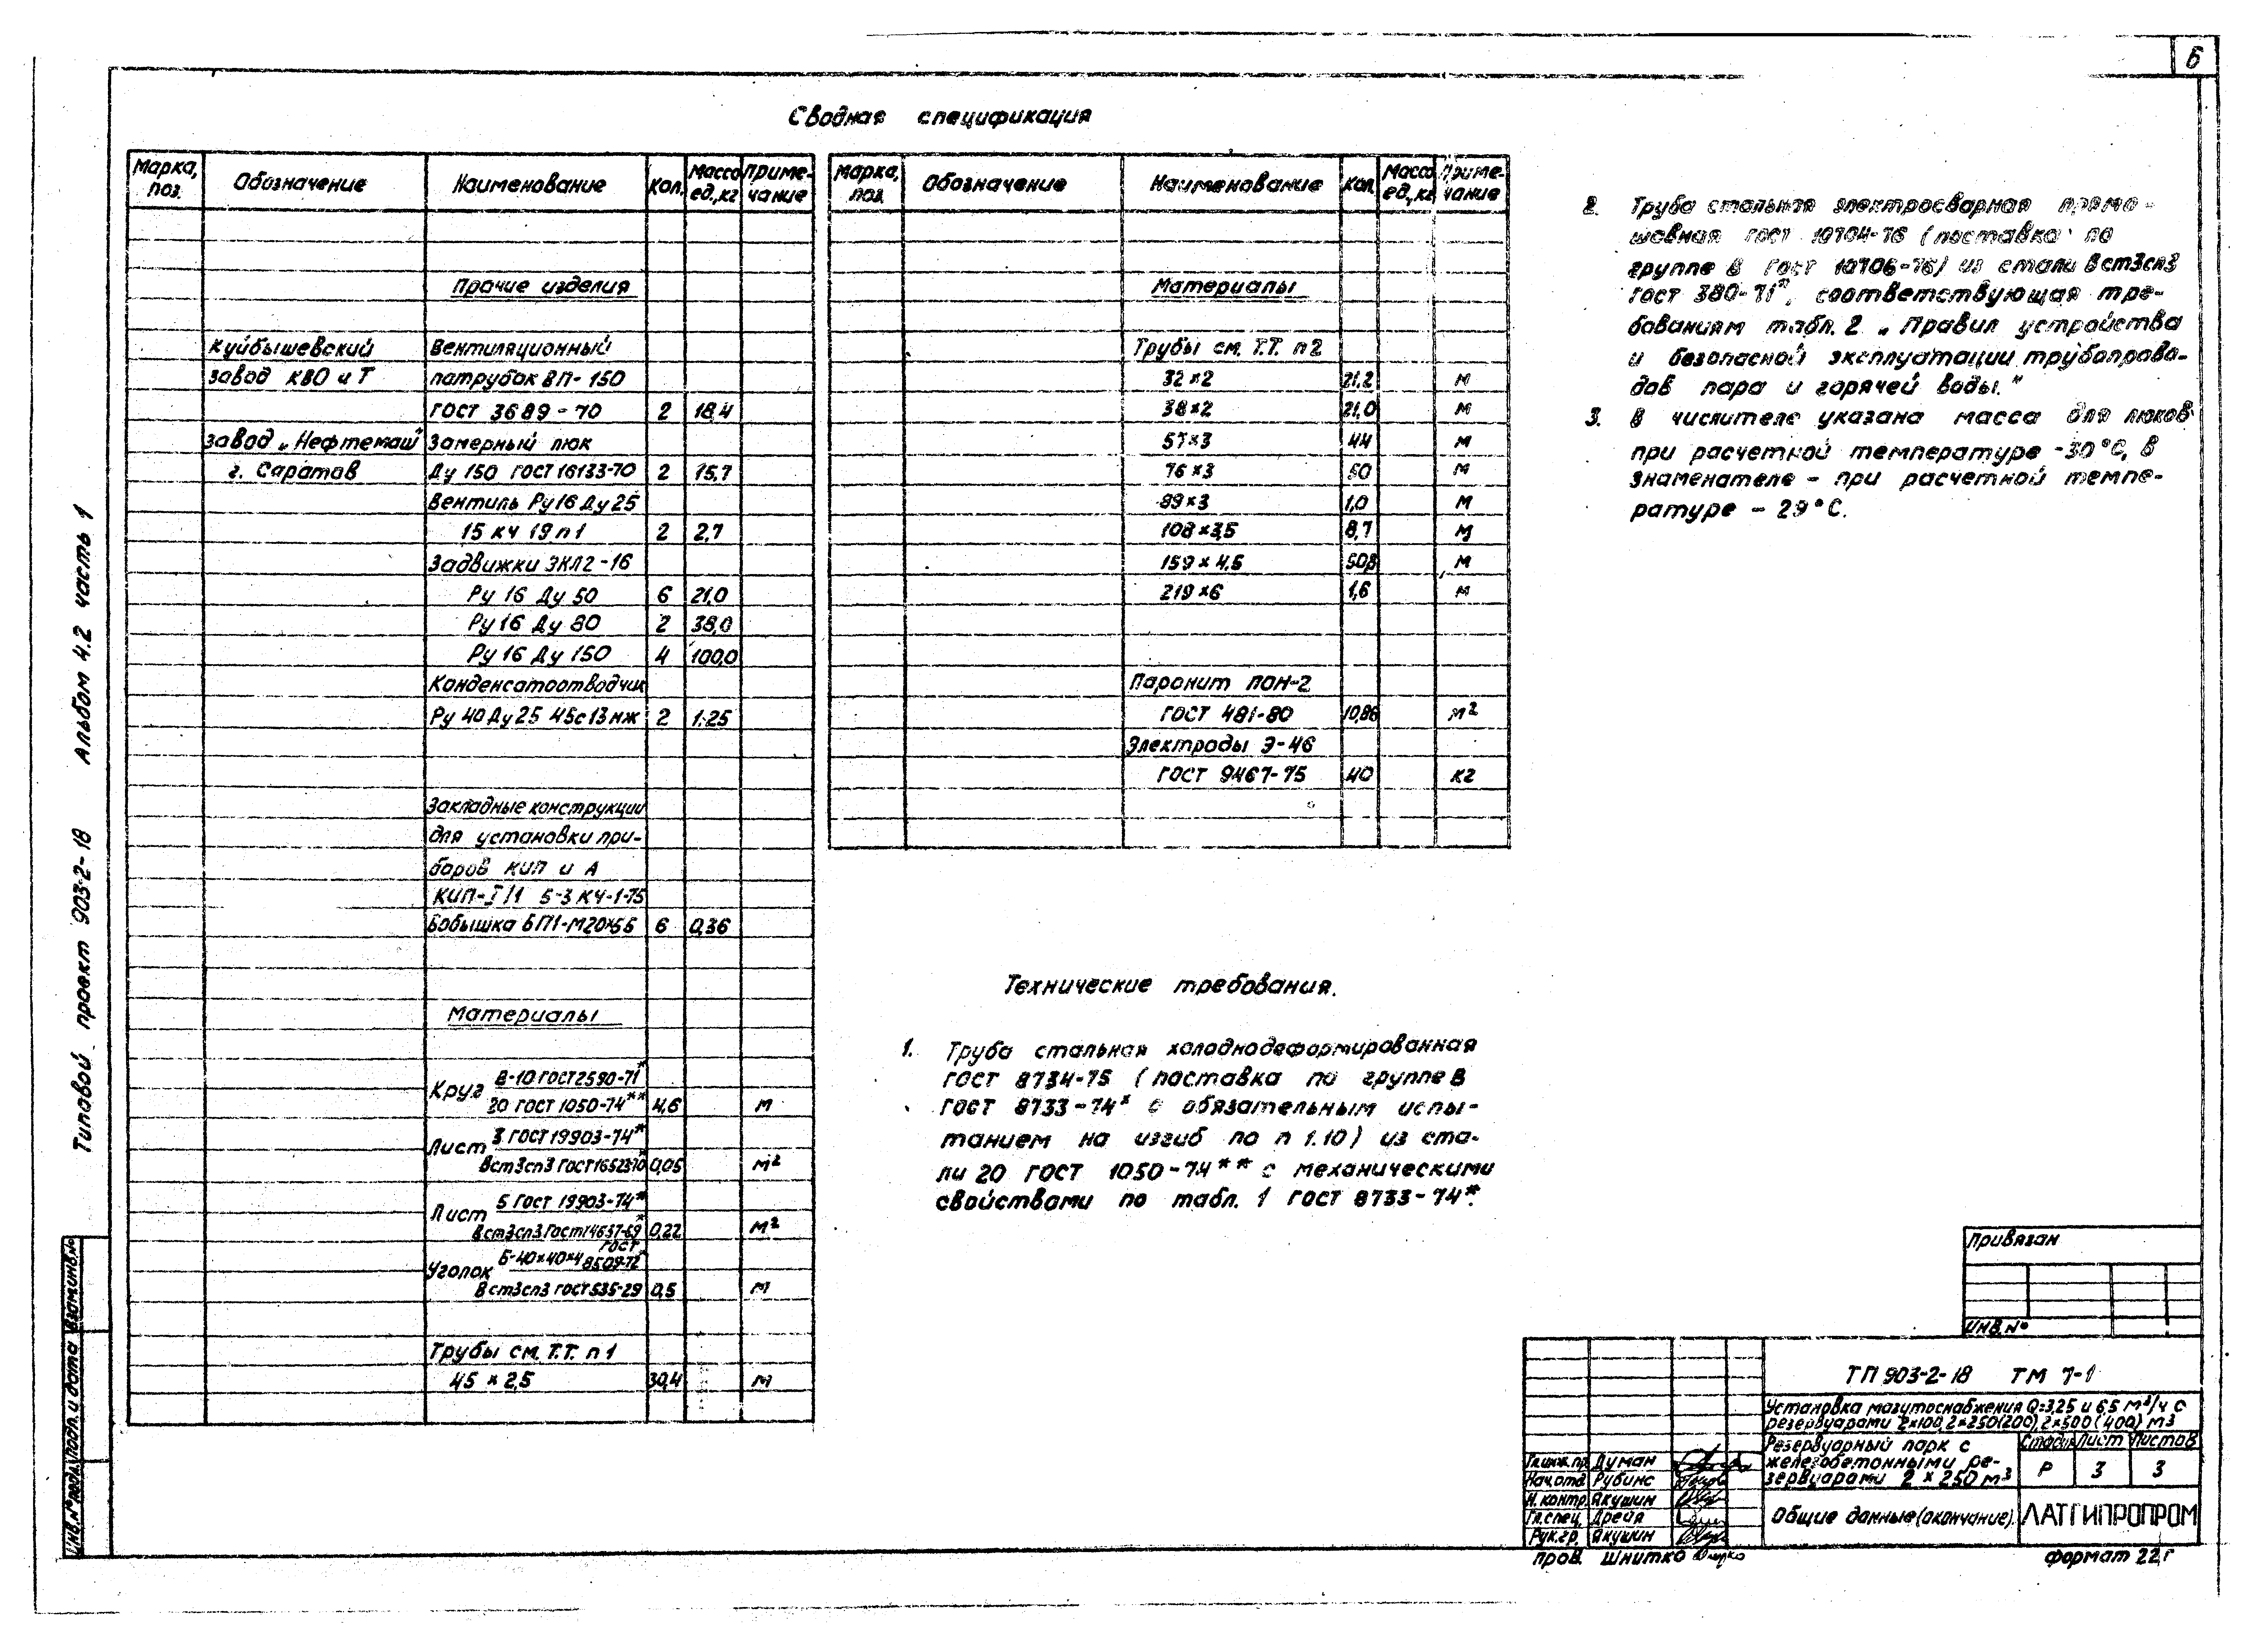 6
Сводная спецификация
Марка, поз. Обозначение Наименование Кол. Масса ед., кг Примечание
Прочие изделия
Куйбышевский Вентиляционный
завод КВО и Т патрубок ВП-150
ГОСТ 3689-70 2 18,4
Завод „Нефтемаш" Замерный люк
г. Саратов Ду 150 ГОСТ 16133-70 2 15,7
Вентиль Ру16 Ду25
15 кч 19 п1 2 2,7
Задвижки ЗКЛ2-16
Ру 16 Ду 50 6 21,0
Ру 16 Ду 80 2 38,0
Ру 16 Ду 150 4 100,0
Конденсатоотводчик
Ру 40 Ду 25 45с13нж 2 1.25
Закладные конструкции
для установки при-
боров КИП и А
КИП-I/1 5-3 КЧ-1-75
Бобышка БП1-М20×55 6 0,36
Материалы
Круг В-10 ГОСТ 2590-71*
20 ГОСТ 1050-74** 4,6 м
Лист 3 ГОСТ 19903-74*
Вст3сп3 ГОСТ 16523-70* 0,05 м²
Лист 5 ГОСТ 19903-74*
Вст3сп3 ГОСТ 14637-69* 0,22 м²
Уголок Б-40×40×4 ГОСТ 8509-72*
Вст3сп3 ГОСТ 535-29 0,5 м
Трубы см. Т.Т. п1
45 × 2,5 30,4 м
Марка, поз. Обозначение Наименование Кол. Масса ед., кг Примечание
Материалы
Трубы см. Т.Т. п2
32×2 21,2 м
38×2 21,0 м
57×3 44 м
76×3 50 м
89×3 1,0 м
108×3,5 8,7 м
159×4,5 50,8 м
219×6 1,6 м
Паронит ПОН-2
ГОСТ 481-80 10,86 м²
Электроды Э-46
ГОСТ 9467-75 40 кг
Технические требования.
1. Труба стальная холоднодеформированная
ГОСТ 8734-75 (поставка по группе В
ГОСТ 8733-74* с обязательным испы-
танием на изгиб по п 1.10) из ста-
ли 20 ГОСТ 1050-74** с механическими
свойствами по табл. 1 ГОСТ 8733-74*.
2. Труба стальная электросварная прямо-
шовная ГОСТ 10704-76 (поставка по
группе В ГОСТ 10706-76) из стали Вст3сп3
ГОСТ 380-71*, соответствующая тре-
бованиям табл. 2 „Правил устройства
и безопасной эксплуатации трубопрово-
дов пара и горячей воды."
3. В числителе указана масса для люков
при расчетной температуре -30°С, в
знаменателе - при расчетной темпе-
ратуре - 29°С.
Типовой проект 903-2-18 Альбом 4.2 часть 1
Инв.№ подл. Подп. и дата Взам.инв.№
Привязан
Инв.№
ТП 903-2-18 ТМ 7-1
Установка мазутоснабжения Q=3,25 и 6,5 м³/ч с
резервуарами 2×100, 2×250(200), 2×500(400) м3
Резервуарный парк с
железобетонными ре-
зервуарами 2 × 250 м³
Стадия Лист Листов
Р 3 3
Общие данные (окончание).
ЛАТГИПРОПРОМ
Гл.инж.пр. Думан
Нач.отд. Рубинс
Н. контр. Якушин
Гл.спец. Дрейя
Рук.гр. Якушин
Пров. Шнитко
Формат 22г